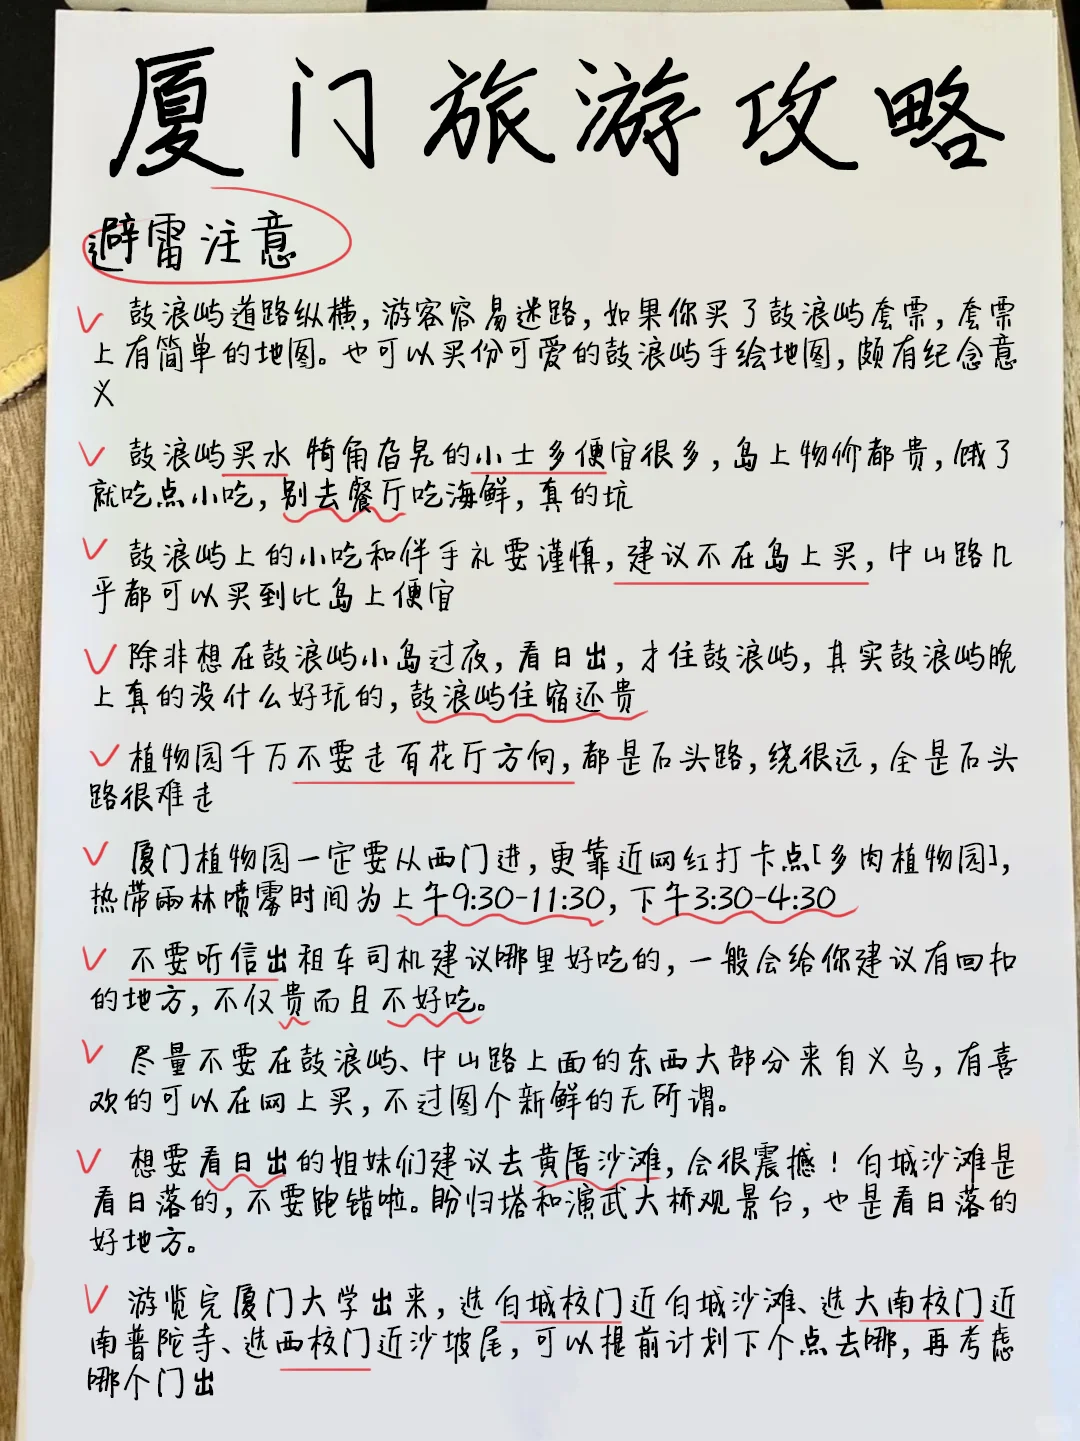 厦门旅游攻略
避雷注意
鼓浪屿道路纵横,游客容易迷路,如果你买了鼓浪屿套票,套票
上有简单的地图。也可以买份可爱的鼓浪屿手绘地图,颇有纪念意
义
鼓浪屿买水 犄角旮旯的小士多便宜很多,岛上物价都贵,饿了
就吃点小吃,别去餐厅吃海鲜,真的坑
鼓浪屿上的小吃和伴手礼要谨慎,建议不在岛上买,中山路几
乎都可以买到比岛上便宜
除非想在鼓浪屿小岛过夜,看日出,才住鼓浪屿,其实鼓浪屿晚
上真的没什么好玩的,鼓浪屿住宿还贵
植物园千万不要走百花厅方向,都是石头路,绕很远,全是石头
路很难走
厦门植物园一定要从西门进,更靠近网红打卡点[多肉植物园],
热带雨林喷雾时间为上午9:30-11:30,下午3:30-4:30
不要听信出租车司机建议哪里好吃的,一般会给你建议有回扣
的地方,不仅贵而且不好吃。
尽量不要在鼓浪屿、中山路上面的东西大部分来自义乌,有喜
欢的可以在网上买,不过图个新鲜的无所谓。
想要看日出的姐妹们建议去黄厝沙滩,会很震撼!白城沙滩是
看日落的,不要跑错啦。盼归塔和演武大桥观景台,也是看日落的
好地方。
游览完厦门大学出来,选白城校门近白城沙滩、选大南校门近
南普陀寺、选西校门近沙坡尾,可以提前计划下个点去哪,再考虑
哪个门出